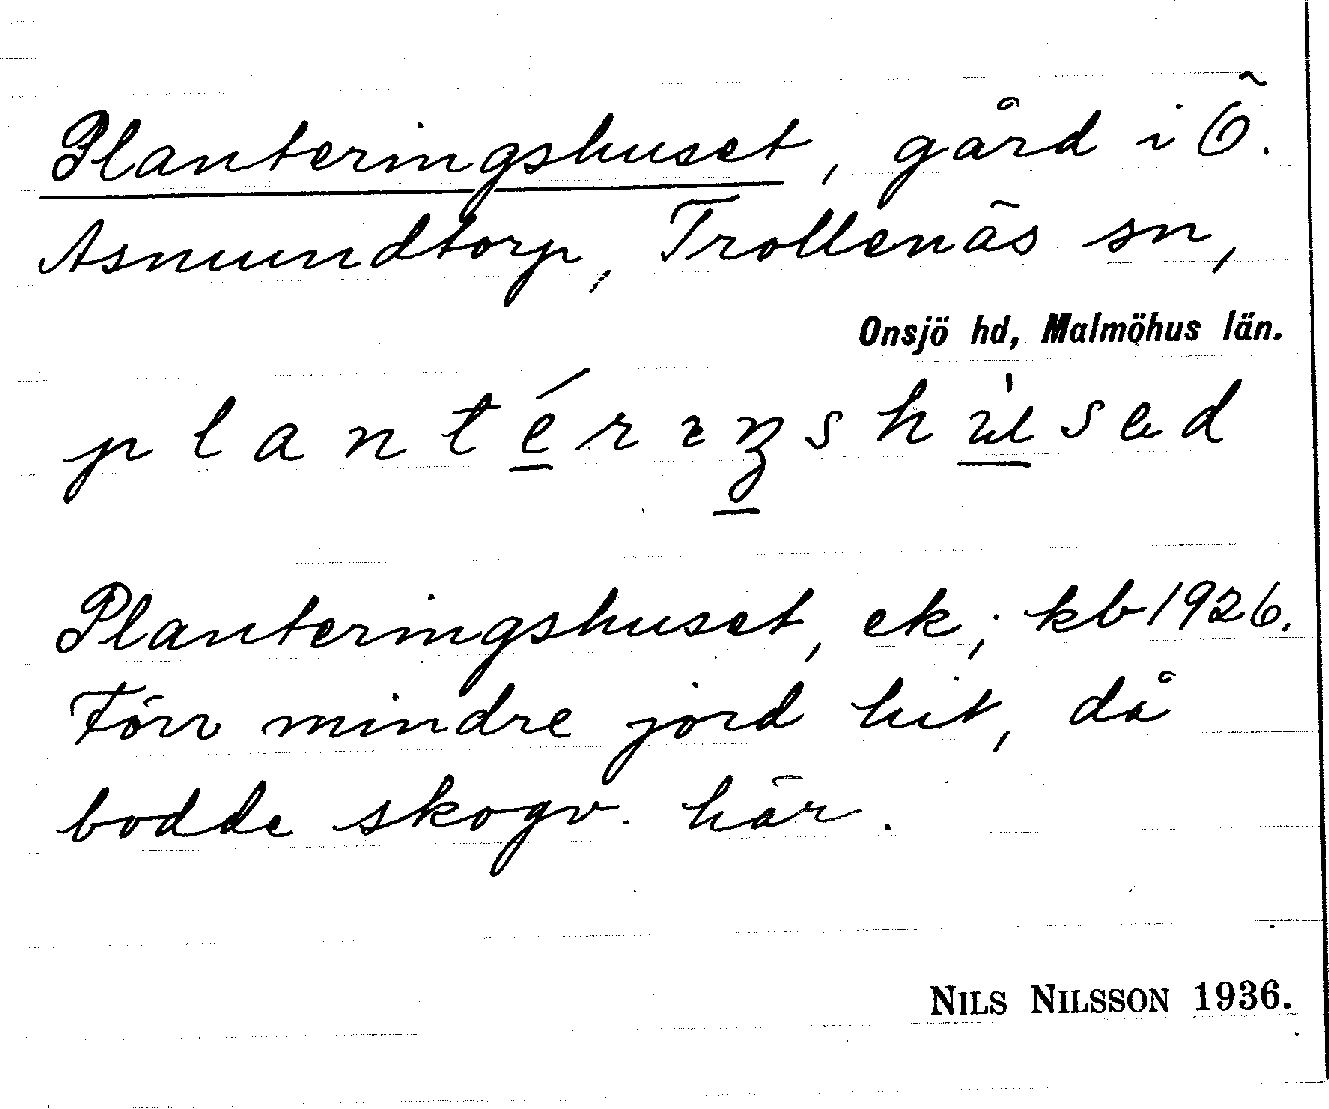 Planteringshuset, gård i Ö.
Asmundtorp, Trollenäs sn,
Onsjö hd, Malmöhus län.
plantérıŋshùsəd
Planteringshuset, ek; kb 1926.
Förr mindre jord hit, då
bodde skogv. här.
NILS NILSSON 1936.